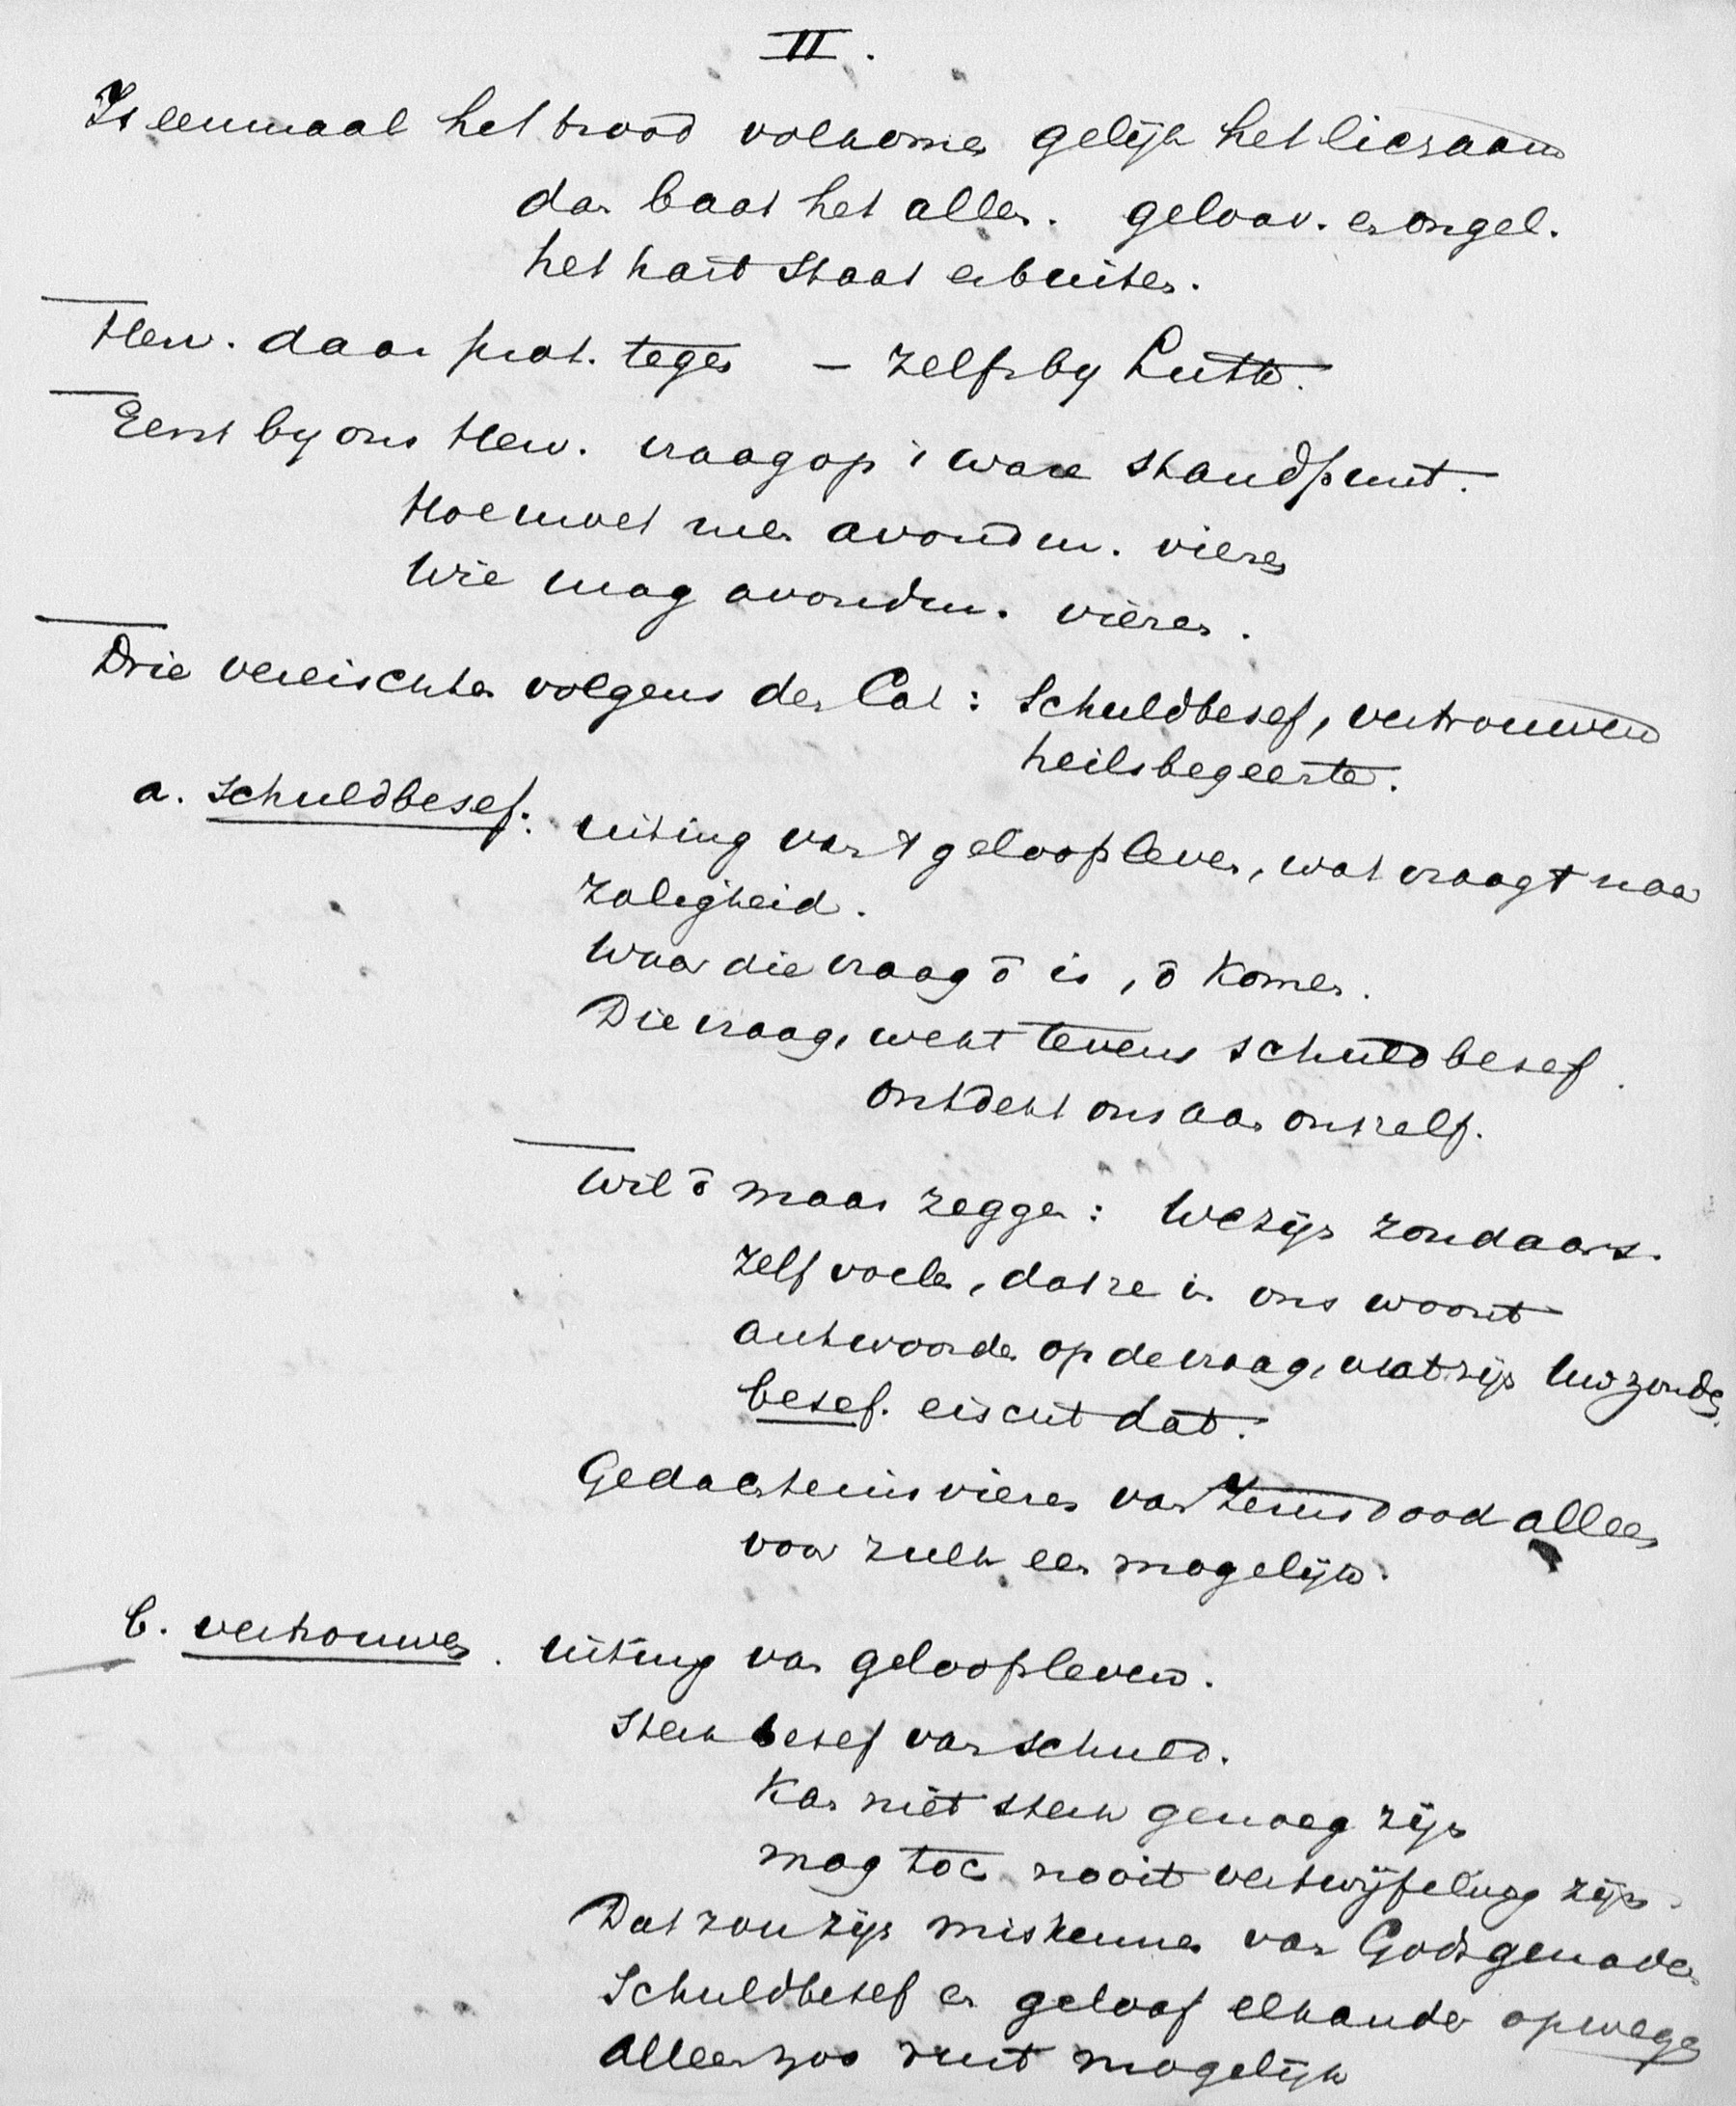 II.
Is eenmaal het brood volkomen gelijk het lichaam
dan baat het allen. geloov. en ongel.
het hart staat er buiten.
Herv. daar prot. tegen – zelfs by Luth.
Eerst by ons Herv. vraag op 't ware standpunt.
Hoe moet men avondm. vieren
Wie mag avondm. vieren.
Drie vereischten volgens den Cat: Schuldbesef, vertrouwen
heilsbegeerte.
a. Schuldbesef: uiting van 't geloofsleven, wat vraagt naar
zaligheid.
Waar die vraag ō is, ō komen.
Die vraag, wekt tevens schuldbesef.
ontdekt ons aan onszelf.
Wil ō maar zeggen: We zijn zondaars.
Zelf voelen, dat ze in ons woont
antwoorden op de vraag, wat zijn Uw zonden.
besef. eischt dat.
Gedachtenis vieren van Jezus dood alleen
voor zulk een mogelijk.
b. vertrouwen. uiting van geloofsleven.
Sterk besef van schuld.
Kan niet sterk genoeg zijn
mag toch nooit vertwijfeling zijn.
Dat zou zijn miskennen van Gods genade
Schuldbesef en geloof elkander opwegen
Alleen zoo rust mogelijk